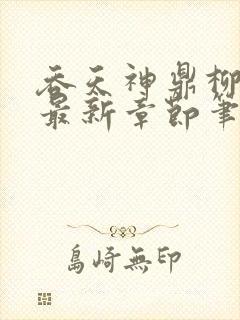 吞天神鼎柳
最新章節筆
島崎無印